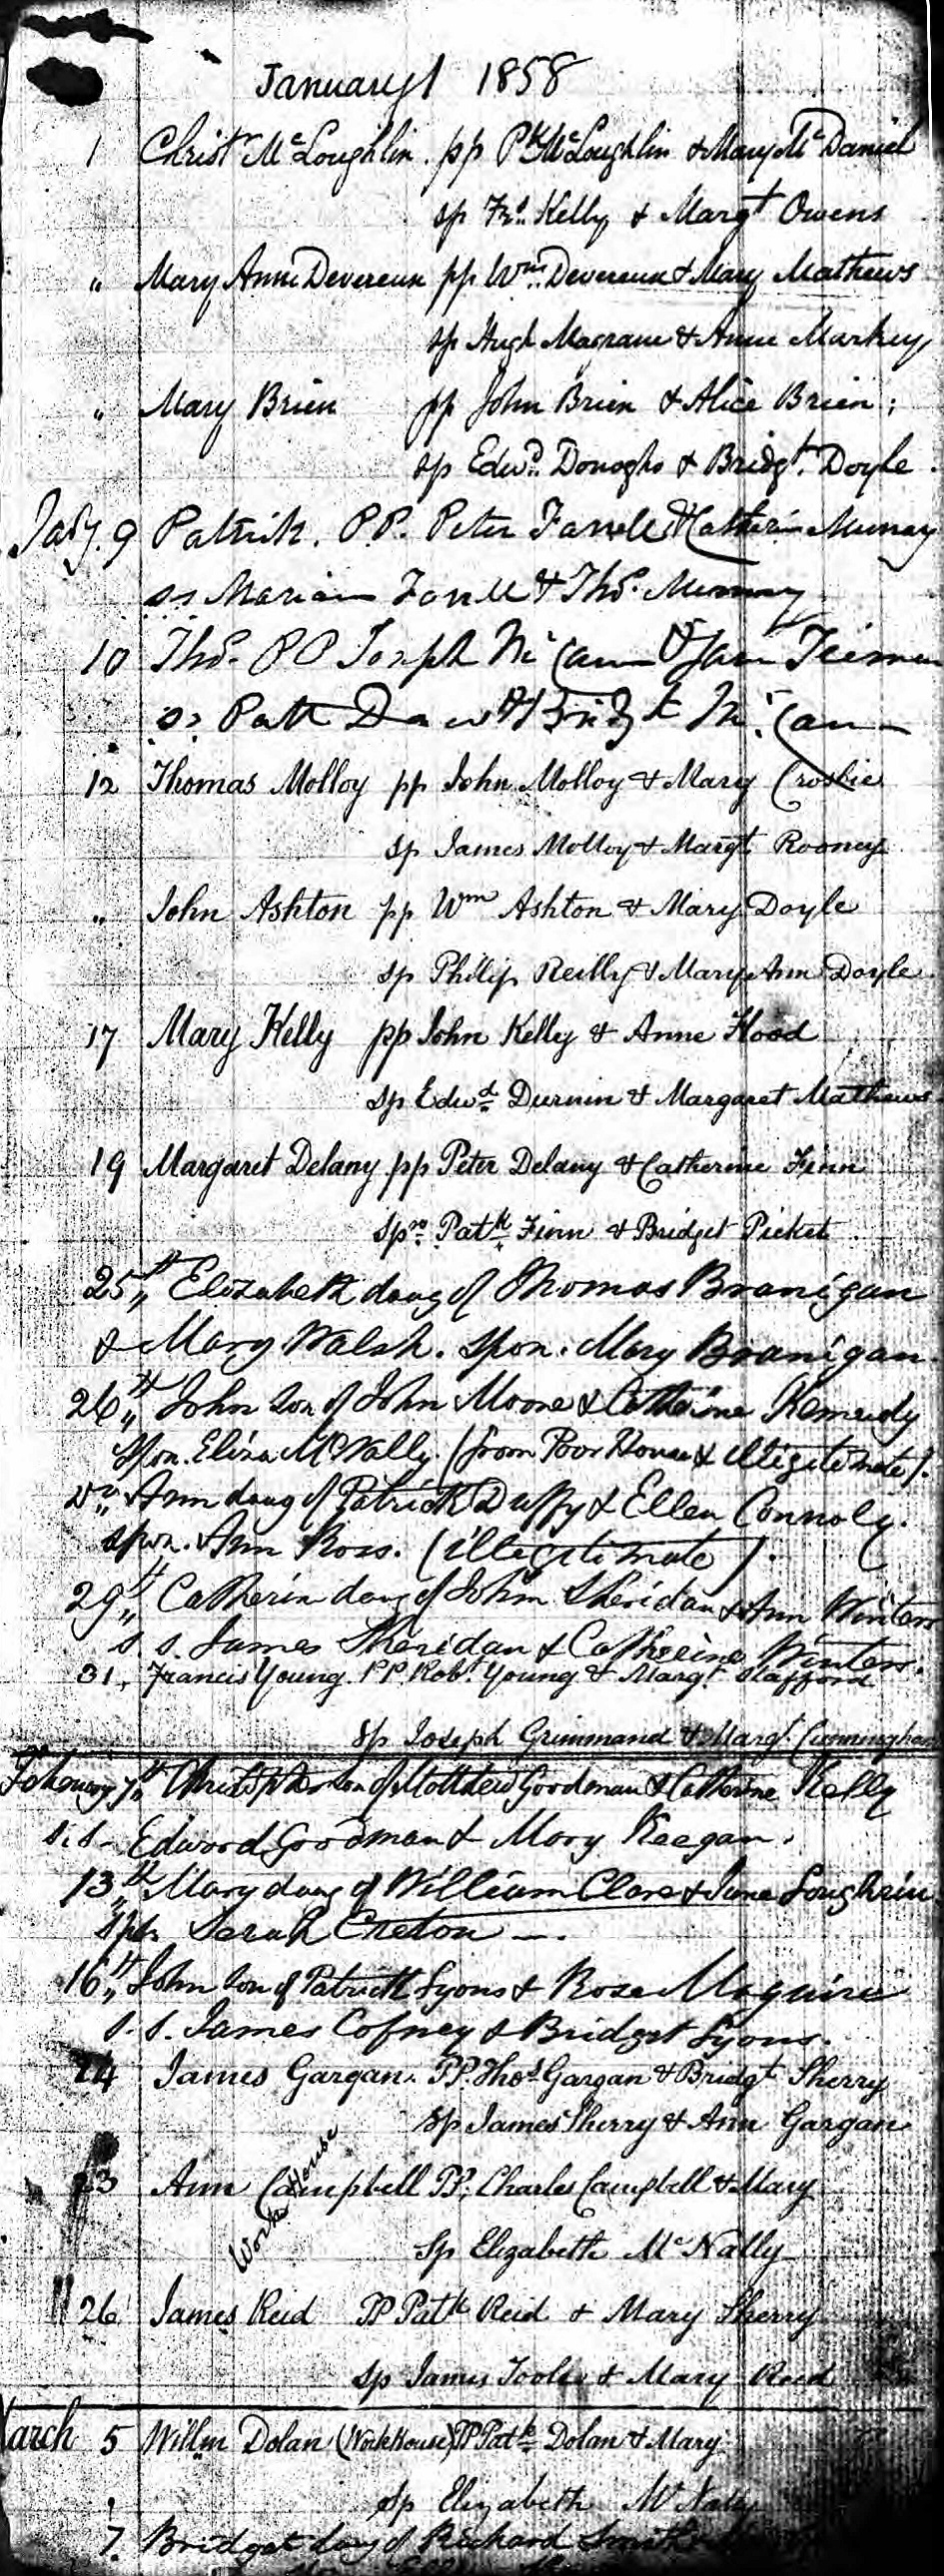 January 1858
1 Christr McLoughlin. pp Pk McLoughlin & Mary McDaniel
sp Frs. Kelly & Margt Owens
" Mary Anne Devereux pp Wm. Devereux & Mary Mathews
sp Hugh Magrane & Anne Markey
" Mary Brien pp John Brien & Alice Brien;
sp Edwd. Donogho & Bridgt. Doyle.
Jany. 9 Patrick. P.P. Peter Farrell & Catherin Murray
ss Mariam Farrell & Thos. Murray
10 Thos. PP Joseph McCann & Jane Tiernan
ss Patt & Bridgt McCann
12 Thomas Molloy pp John Molloy & Mary Crosbie
sp James Molloy & Margt Rooney
" John Ashton pp Wm Ashton & Mary Doyle
sp Philip Reilly & Mary Ann Doyle.
17 Mary Kelly pp John Kelly & Anne Hood
sp Edwd Durnin & Margaret Mathews
19 Margaret Delany pp Peter Delany & Catherine Finn
Sprs. Patk Finn & Bridget Picket
25th Elizabeth daug of Thomas Branigan
& Mary Walsh. Spon. Mary Branigan.
26th John son of John Moore & Catherine Kennedy
Spon. Eliza McNally. (from Poor House & illegitimate).
Do Ann daug of Patrick Duffy & Ellen Connoly.
spon. Ann Ross. (illegitimate).
29th Catherin daug of John Sheridan & Ann Winters
s. s. James Sheridan & Catherine Winters.
31, Francis Young. PP. Robt Young & Margt Stafford
Sp Joseph Grimmand & Margt. Cunningham
February 7th Christopher son of Matthew Goodman & Catherine Kelly
s.s- Edward Goodman & Mary Keegan.
13th Mary daug of William Clare & Jane Loughrin
Sps Sarah Creton —.
16th John son of Patrick Lyons & Rose Maguire
s. s. James Cofney & Bridget Lyons.
24 James Gargan. PP. Thos Gargan & Bridgt Sherry
Sp James Sherry & Ann Gargan
23 Ann Campbell PP. Charles Campbell & Mary
Work House
Sp Elizabeth McNally
" 26 James Reid PP Patk Reid & Mary Sherry
Sp James Toole & Mary Reid
March 5 Willm Dolan (WorkHouse) PP Patk Dolan & Mary
Sp Elizabeth McNally
7. Bridget daug of Richard